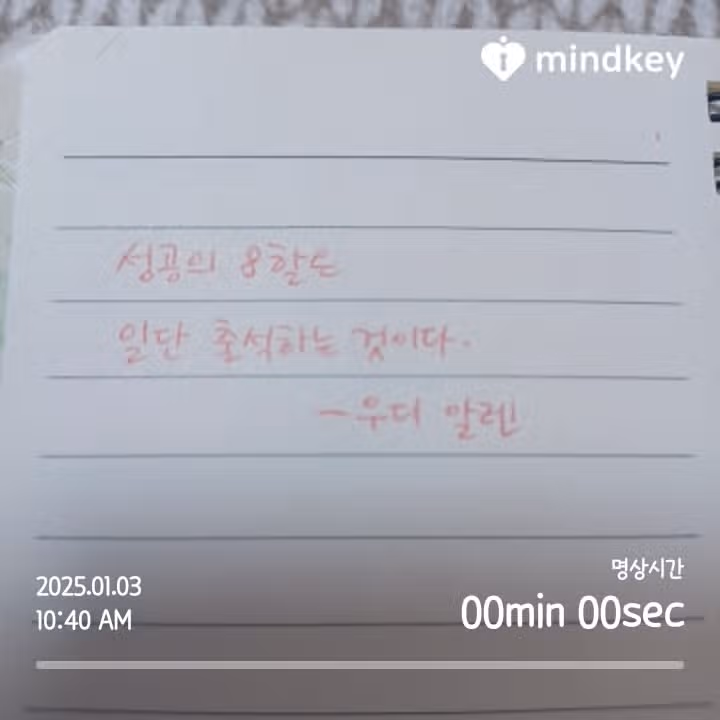 mindkey
성공의 8할은
일단 출석하는 것이다.
- 우디 알렌
명상시간
2025.01.03
10:40 AM
00min 00sec